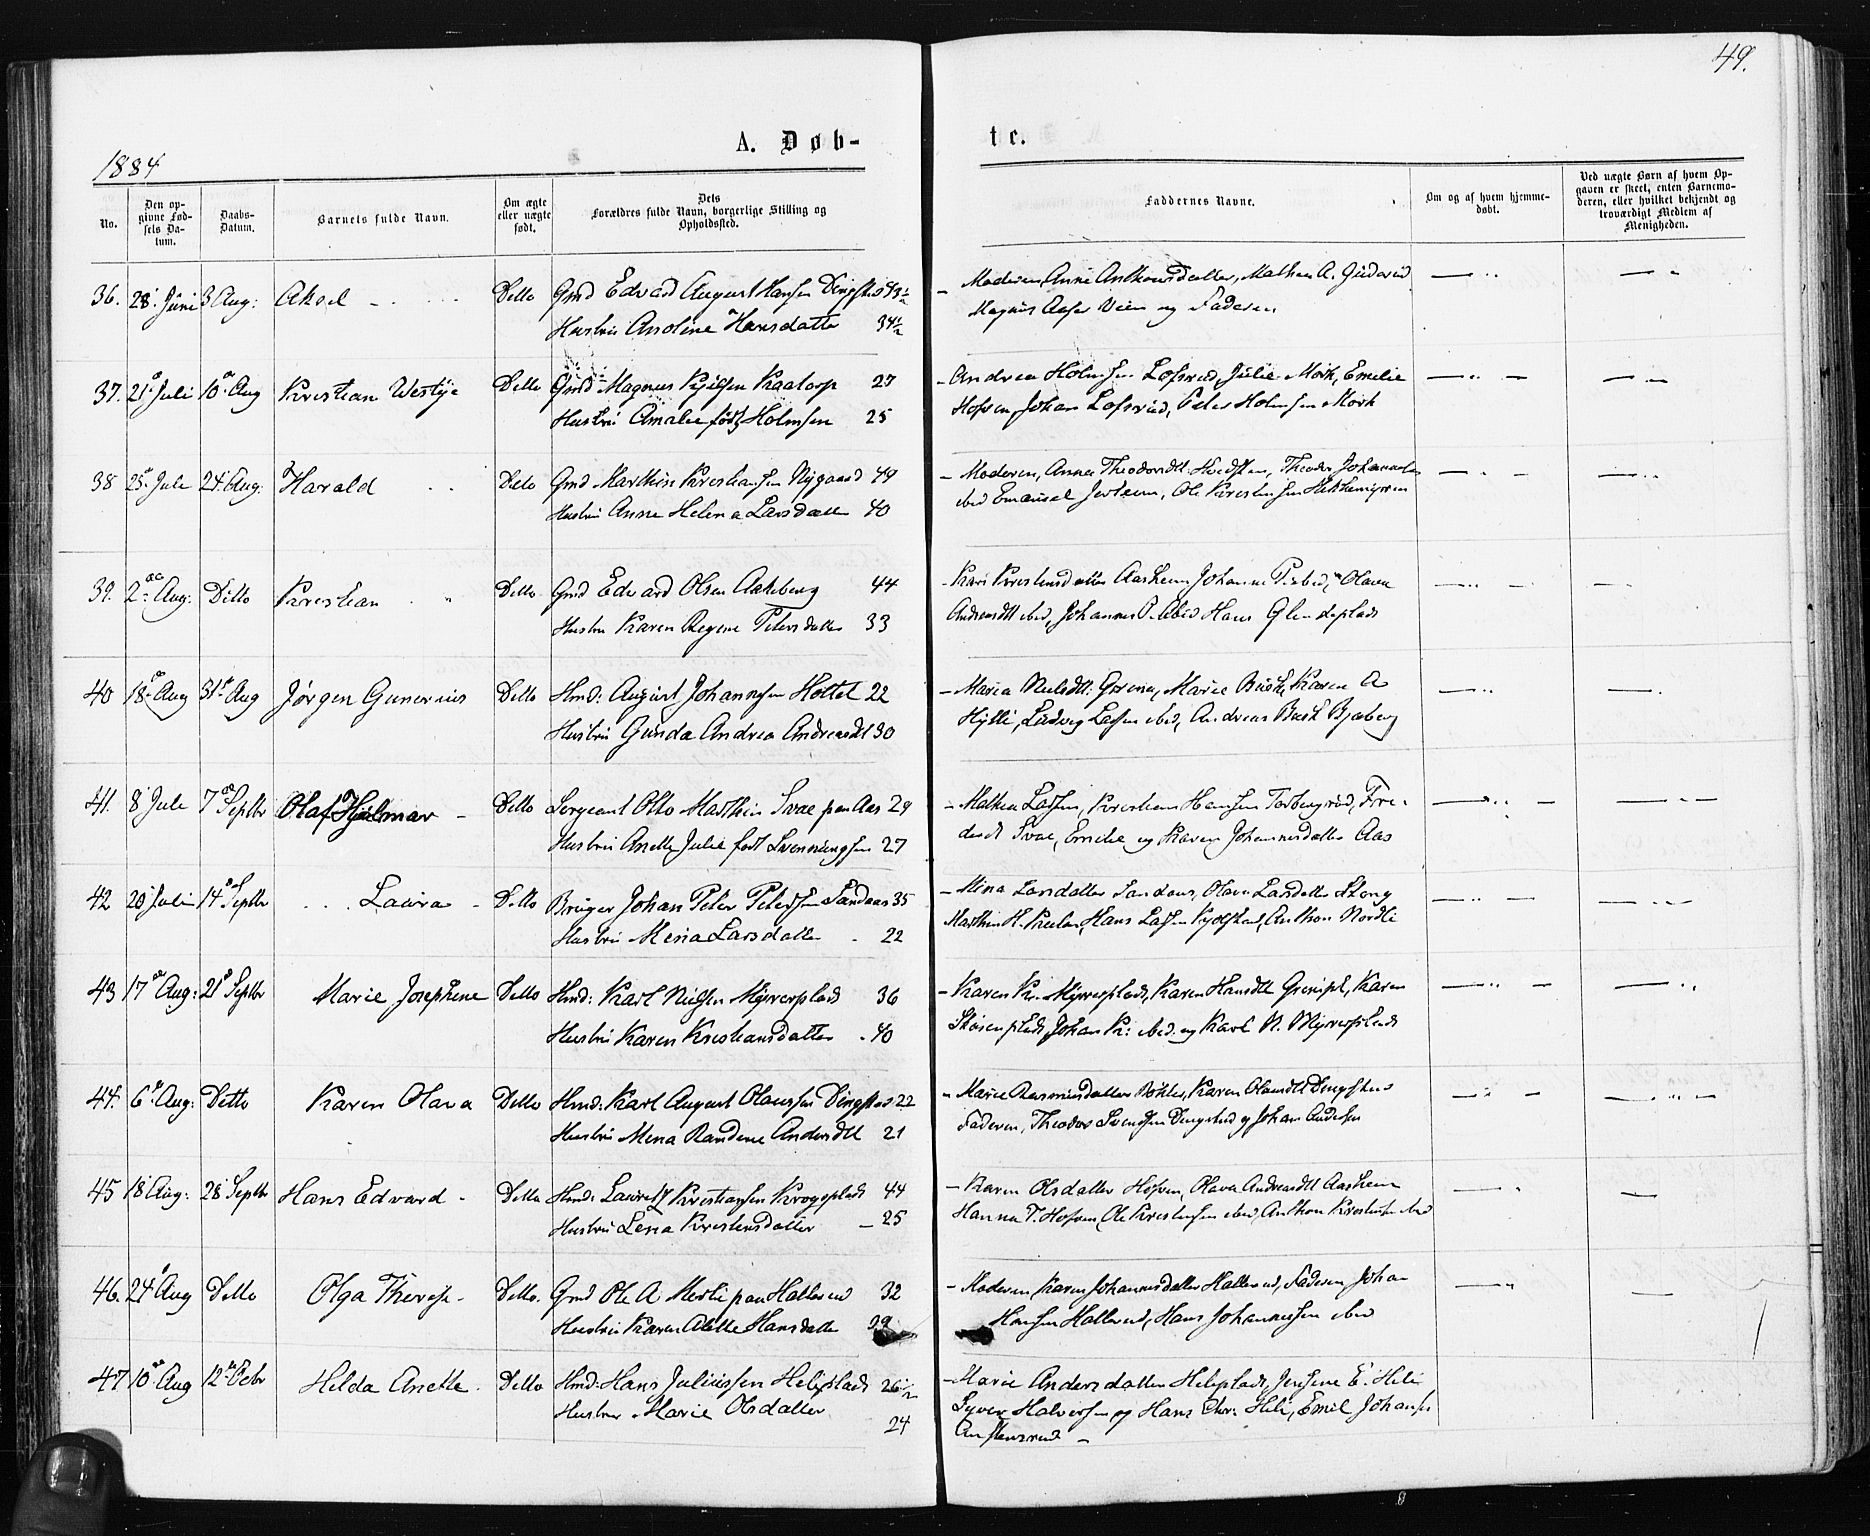 49.
A. Døb-
te.
1884
No.
Den op-
givne Fød-
sels Da-
tum.
Daabs-
Datum.
Barnets fulde Navn.
Om ægte
eller uægte
født.
Dets
Forældres fulde Navn, borgerlige Stilling og
Opholdssted.
Faddernes Navne.
Om og af hvem hjemme-
døbt.
Ved uægte Børn af hvem Op-
gaven er skeet, enten Barnemo-
deren, eller hvilket bekjendt og
troværdigt Medlem af
Menigheden.
36. 28 Juni 3 Aug: Aksel Ditto Gmd Edvard August Hansen Dingstad 43½
Hustru Anoline Hansdatter 34½
Moderen, Anne Anthonsdatter, Mathea A.
Magnus og Faderen
37. 21 Juli 10 Aug Kristian Westye Ditto Gmd Magnus Kaatorp 27
Hustru Amalie født Holmsen 25
Andrea Holmsen Lofsrud, Julie Mork, Emelie
Hofven Johan Lofsrud, Peter Holmsen Mork
38 25 Juli 24 Aug. Harald Ditto Gmd Marthin Kristiansen Nygaard 49
Hustru Anne Helena Larsdatter 40
Moderen, Anna Theodorsdtt. Theodor
ibid Emanuel Ole Kristensen
39. 2 Aug. Ditto Kristian Ditto Gmd Edvard Olsen Aakeberg 44
Hustru Karen Regine Petersdatter 33
Kari Kristensdatter Aasheim Johanne P. ibid, Olava
Andreasdtt ibid, Johannes P. ibid Hans
40 18 Aug 31 Aug Jørgen Gunerius Ditto Hmd: August Johannesen Hottet 22
Hustru Gunda Andrea Andreasdtt 30
Maria Nielsdtt: Marie Busk, Karen A
Hytti, Ludvig Larsen ibid, Andreas Busk Bjøberg
41. 8 Juli 7 Septbr Olaf Hjalmar Ditto Sergeant Otto Marthin Svae paa Aas 29
Hustru Anette Julie født Svenningsen 27
Mathea Larsen, Kristians Hansen Torbergrud, Fre-
derik Svae, Emilie og Karen Johannesdatter Aas
42 20 Juli 14 Septbr Laura Ditto Bruger Johan Peter Petersen Sandaas 35
Hustru Mina Larsdatter 22
Mina Larsdatter Sandaas, Olava Larsdatter
Marthin H. Hans Larsen Anthon Nordli
43 17 Aug: 21 Septbr Marie Josephine Ditto Hmd: Karl Nielsen Myrerplads 36
Hustru Karen Kristiansdatter 40
Karen Kr. Myrerplads, Karen Hansdtt Karen
Johan Kr: ibid. og Karl N. Myrerplads
44. 6 Aug: Ditto Karen Olava Ditto Hmd: Karl August Olaussen Dingstad 22
Hustru Mina Randine Andersdtt 21
Marie Rasmusdatter Karen Olausdtt Dingstad
Faderen, Theodor Svendsen Dingstad og Johan Andersen
45 18 Aug: 28 Septbr Hans Edvard Ditto Hmd: Lauretz Kristiansen Krogsplads 44
Hustru Lena Kristensdatter 25
Karen Olsdatter Hofven, Olava Andreasdtt Aasheim
Hanna T. Hofven, Ole Kristensen ibid, Anthon Kristensen ibid
46. 24 Aug Ditto Olga Therese Ditto. Gmd Ole A. paa Hallerud 32
Hustru Karen Alette Hansdatter 39
Moderen Karen Johannesdatter Hallerud, Faderen Johan
Hansen Hallerud, Hans Johannessen ibid
47 10 Aug 12 Octbr Hilda Anette Ditto Hmd: Hans Juliussen Heliplads 26½
Hustru Marie Olsdatter 24
Marie Andersdatter Heliplads, Jensine E. Heli
Syver Halvorsen og Hans Chr: Heli, Emil Johansen